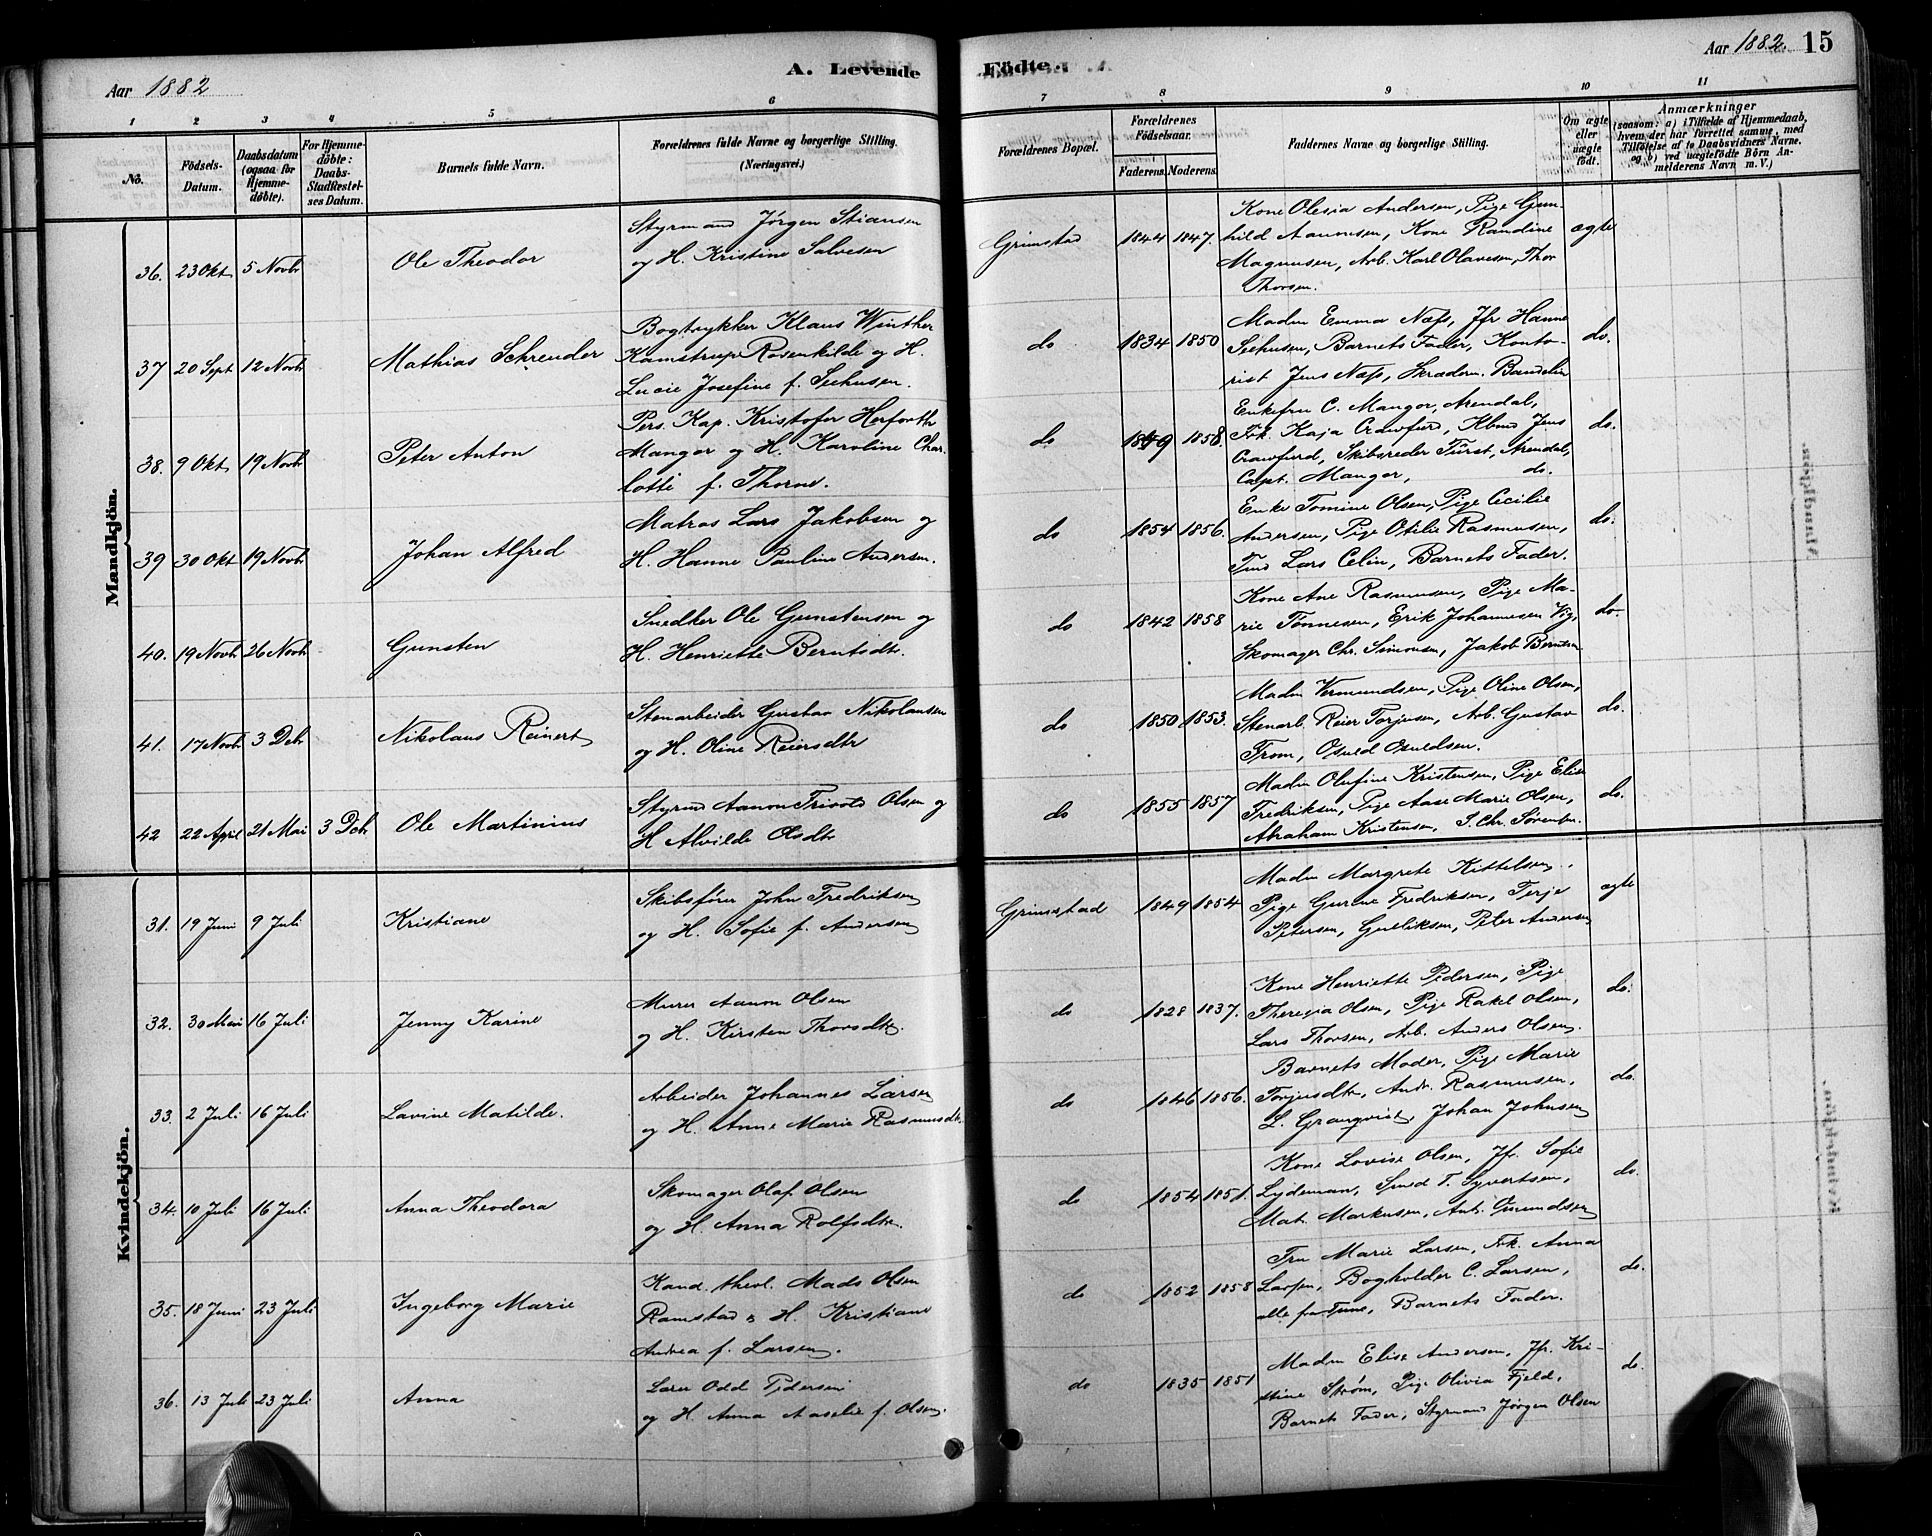 Aar 1882
A. Levende
Födte.
Aar 1882. 15
1 2 3 4 5 6 7 8 9 10 11
No.
Födsels-
Datum.
Daabsdatum
(ogsaa for
Hjemme-
döbte).
For Hjemme-
döbte:
Daabs-
Stadfæstel-
ses Datum.
Barnets fulde Navn.
Forældrenes fulde Navne og borgerlige Stilling.
(Næringsvei.)
Forældrenes Bopæl.
Forældrenes
Födselsaar.
Faderens. Moderens.
Faddernes Navne og borgerlige Stilling.
Om ægte
eller
uægte
født.
Anmærkninger
(saasom: a) i Tilfælde af Hjemmedaab,
hvem der har forrettet samme, med
Tilföielse af to Daabsvidners Navne,
og b) ved uægtefödte Börn An-
melderens Navn m. V.)
Mandkjön.
36. 23 Okt 5 Novbr Ole Theodor
Styrmand Jörgen Stiansen
og H. Kristine Salvesen
Grimstad 1844 1847.
Kone Olesia Andersen, Pige Gun-
hild Aanonsen, Kone Randine
Magnussen, Arb. Karl Olavesen, Thor
Thorsen.
ægte
37 20 Sept 12 Novbr Mathias Schreuder
Bogtrykker Klaus Winther
Kamstrup Rosenkilde og H.
Lucie Josefine f. Seehusen.
do 1834 1850
Madm Emma Næss, Jfr Hanne
Seehusen, Barnets Fader, Konto-
rist Jens Næss, Skræderm. Bandelin
do.
38. 9 Okt 19 Novbr Peter Anton
Pers. Kap. Kristofer Herforth
Mangor og H. Karoline Char-
lotte f. Thorne.
do 1849 1858.
Enkefru C. Mangor, Arendal,
Frk. Kaja Crawfurd, Kbmd Jens
Crawfurd, Skibsreder Fürst, Arendal,
Capt. Mangor, do.
do.
39 30 Okt 19 Novbr Johan Alfred
Matros Lars Jakobsen og
H. Hanne Pauline Andersen.
do 1854 1856.
Enke Tomine Olsen, Pige Cecilie
Andersen, Pige Otilie Rasmussen,
Lars Celin, Barnets Fader.
do.
40. 19 Novbr 26 Novbr Gunsten
Snedker Ole Gunstensen og
H. Henriette Berntsdtr.
do 1842 1858
Kone Ane Rasmussen, Pige Ma-
rie Tönnesen, Erik Johannesen Vig,
Skomager Chr. Simonsen, Jakob Berntsen
do.
41. 17 Novbr 3 Dcbr Nikolaus Reinert
Stenarbeider Gustav Nikolausen
og H. Oline Reiersdtr
do 1850 1853.
Madm Vermundsen, Pige Oline Olsen,
Stenarb. Reier Torjusen, Arb. Gustav
From, Osuld Osuldsen.
do.
42 22 April 21 Mai 3 Dcbr Ole Martinius
Styrmd Aanon Olsen og
H Alvilde Olsdtr
do 1855 1857
Madm Olufine Kristensen, Pige Elise
Fredriksen, Pige Aase Marie Olsen,
Abraham Kristensen, J. Chr. Sörensen
do.
Kvindekjön.
31. 19 Juni 9 Juli Kristiane
Skibsförer John Fredriksen
og H. Sofie f. Andersen
Grimstad 1849 1854
Madm Margrete Kittelsen,
Pige Gurine Fredriksen, Terje
Petersen, Gulliksen, Peter Andersen
ægte
32. 30 Mai 16 Juli Jenny Karine
Murer Aanon Olsen
og H. Kirsten Thorsdtr.
do 1828 1837.
Kone Henriette Pedersen, Pige
Theresia Olsen, Pige Rakel Olsen,
Lars Thorsen, Arb. Anders Olsen.
do.
33. 2 Juli 16 Juli Lavine Matilde.
Arbeider Johannes Larsen
og H. Anne Marie Rasmusdtr.
do 1846 1856.
Barnets Moder, Pige Marie
Torjusdtr, Andr. Rasmussen,
L. Granqvist, Johan Johnsen
do.
34. 10 Juli 16 Juli Anna Theodora
Skomager Olaf Olsen
og H. Anna Rolfsdtr.
do 1854 1851.
Kone Lovise Olsen, Jfr. Sofie
Lydeman, Smed T. Syvertsen,
Mat. Markusen, Ant. Gundersen
do.
35. 18 Juni 23 Juli Ingeborg Marie
Kand. theol. Mads Olsen
Ramstad & H. Kristiane
Andrea f. Larsen.
do 1852 1858
Fru Marie Larsen, Frk. Anna
Larsen, Bogholder C. Larsen,
alle fra Tune, Barnets Fader.
do.
36. 13 Juli 23 Juli Anna
Lærer Odd Pedersen
og H. Anna Aaselie f. Olsen.
do 1835 1851
Madm Elise Andersen, Jfr. Kri-
stine Ström, Pige Olivia Fjeld,
Barnets Fader, Styrmand Jörgen Olsen
do.